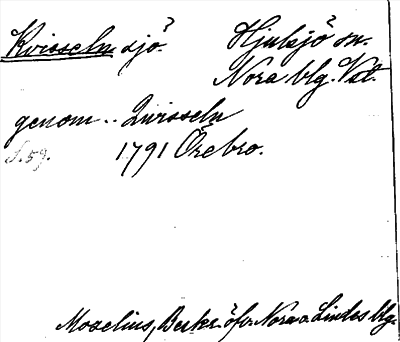 Kvisseln sjö?
Hjulsjö sn.
Nora blg. Vstl.
genom .. Qvisseln
S. 59.
1791 Örebro.
Moselius, Beskr. öfv. Nora o. Lindes blg.